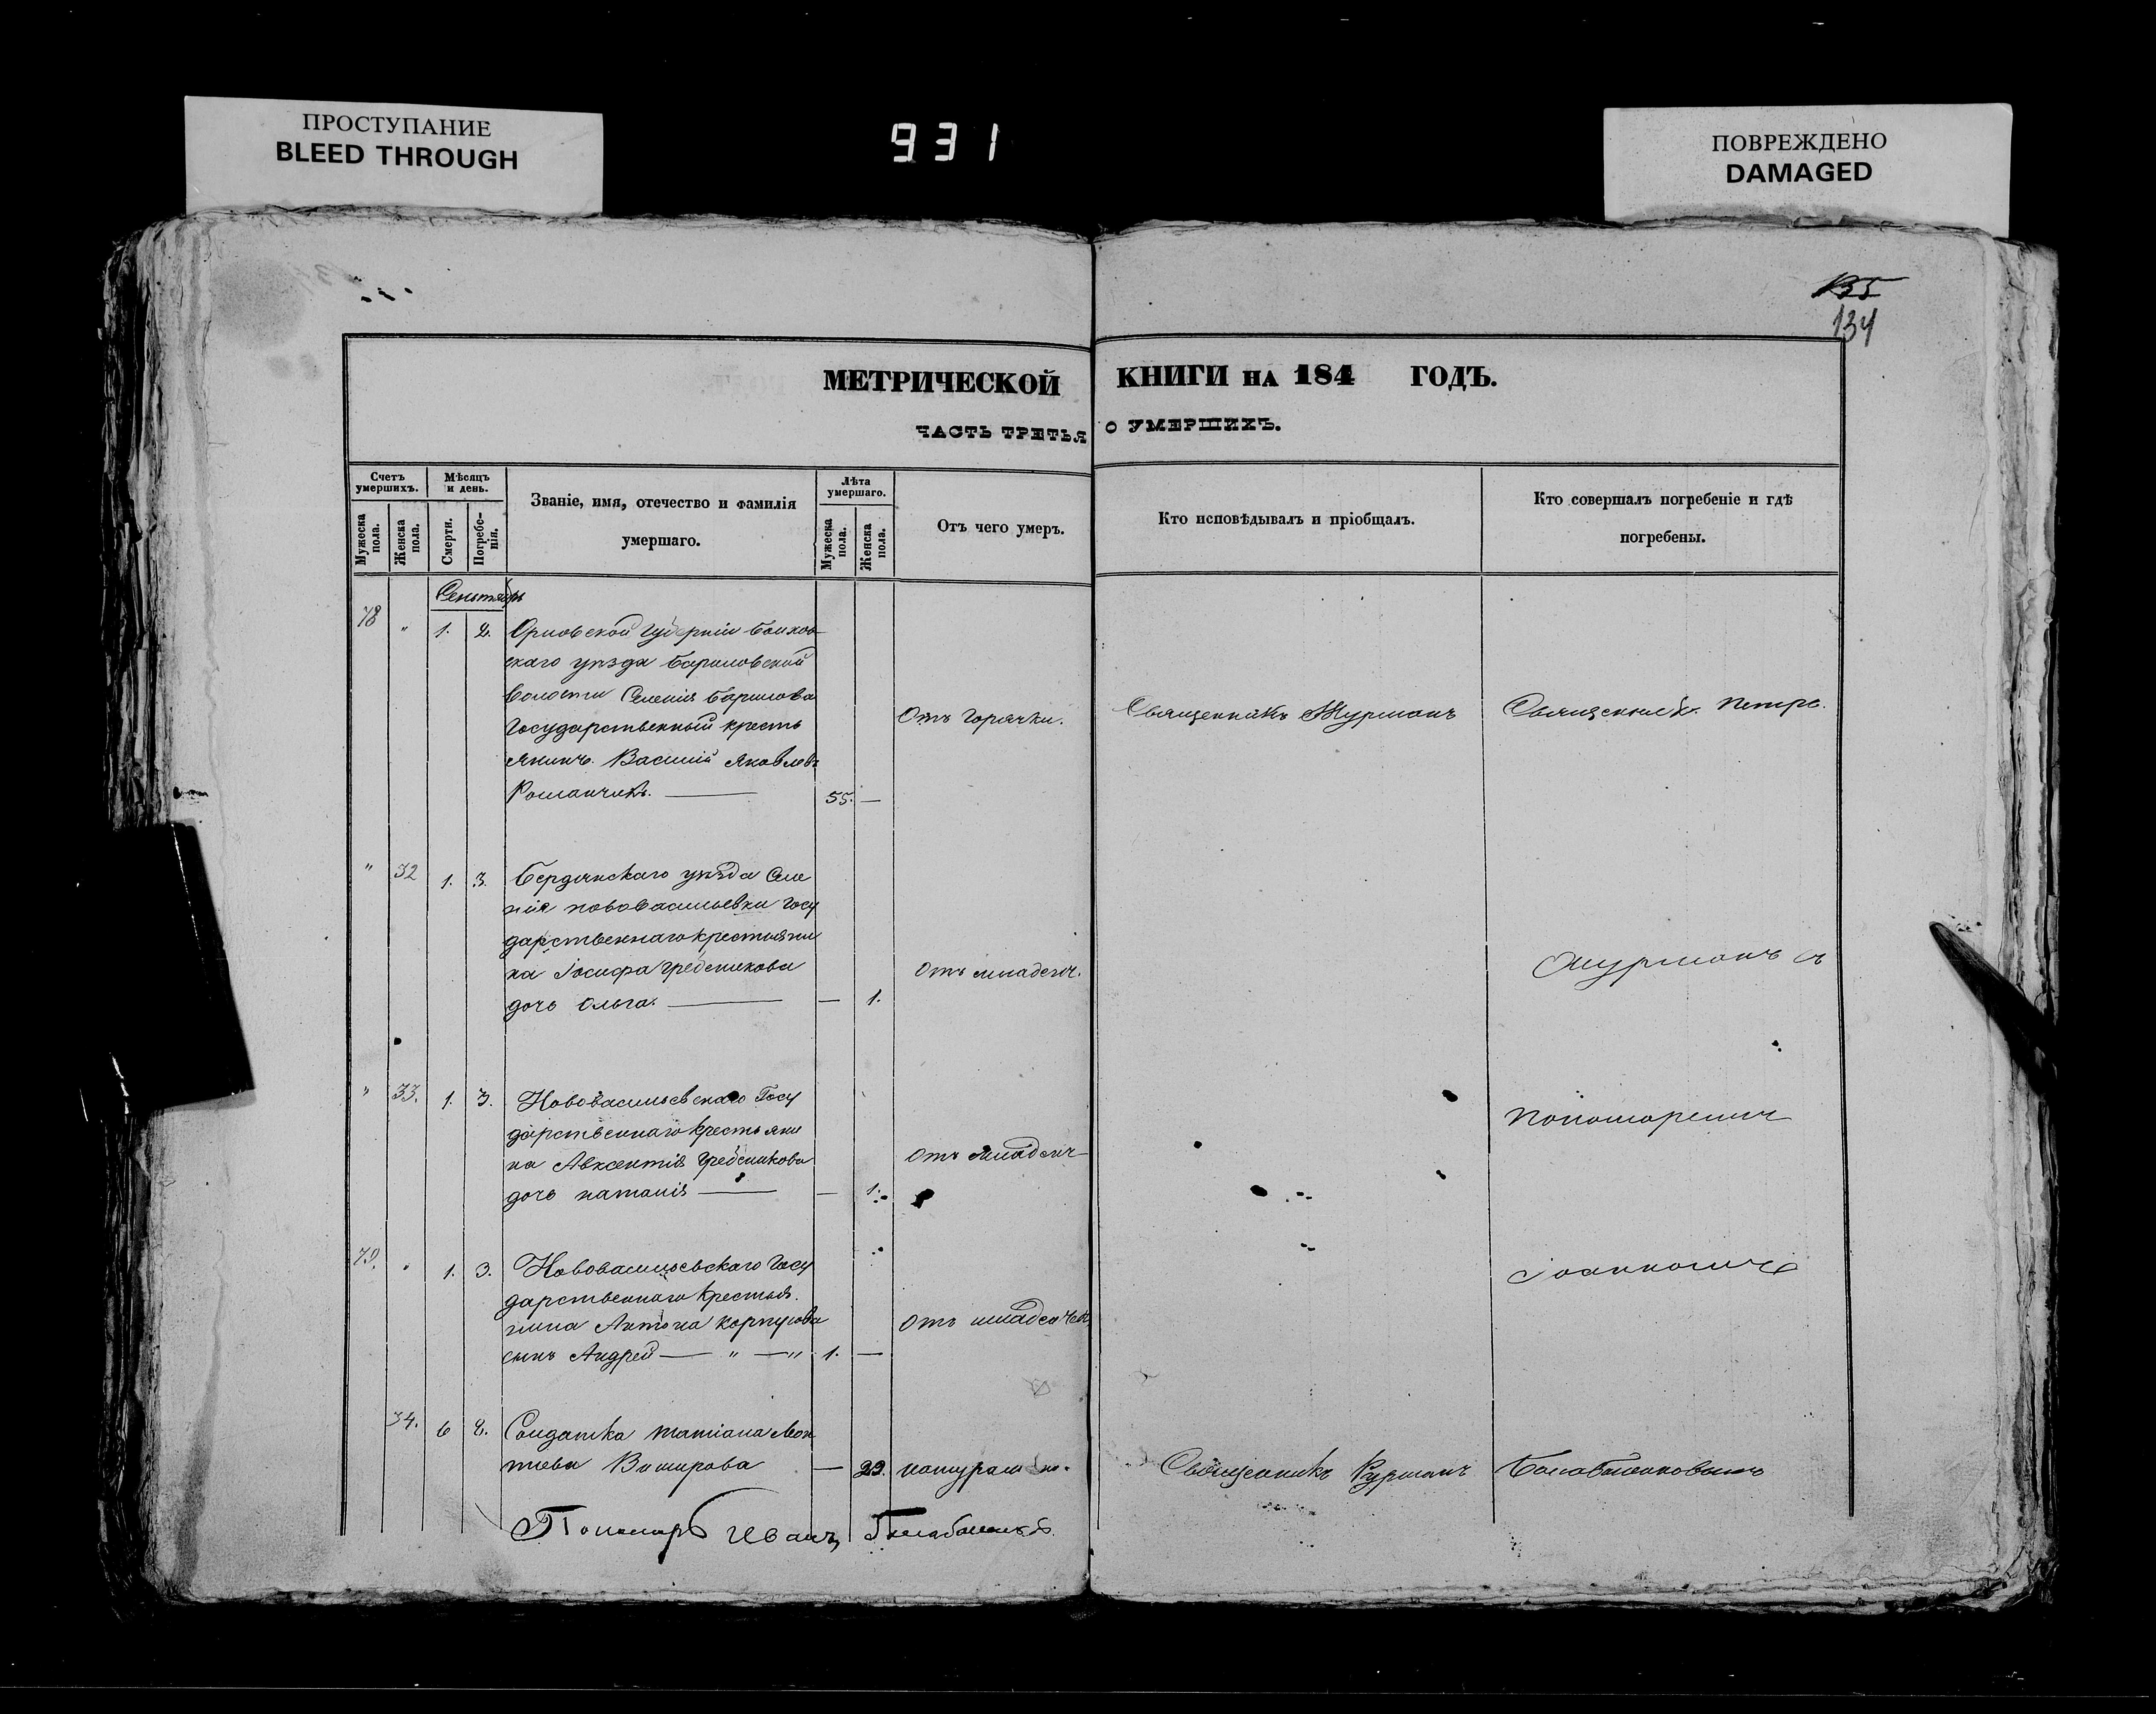 ПРОСТУПАНИЕ
BLEED THROUGH
931
ПОВРЕЖДЕНО
DAMAGED
135
134
МЕТРИЧЕСКОЙ КНИГИ НА 184 ГОДЪ.
ЧАСТЬ ТРЕТЬЯ О УМЕРШИХЪ.
Счетъ умершихъ.
Мужеска пола.
Женска пола.
Мѣсяцъ и день.
Смерти.
Погребенія.
Званіе, имя, отечество и фамилія
умершаго.
Лѣта умершаго.
Мужеска пола.
Женска пола.
Отъ чего умеръ.
Кто исповѣдывалъ и пріобщалъ.
Кто совершалъ погребеніе и гдѣ
погребены.
Сентябрь
78 " 1. 2. Орловской Губерніи Болхов
скаго уѣзда
волости Селенія
Государственный кресть
янинъ Василій Яковлевъ
55. —
Отъ Горячки.
Священникъ
Священник. Петръ
" 32 1. 3. Бердянскаго уѣзда Селе
нія нововасильевки Госу
дарственнаго крестьяни
на Іосифа Гребенникова
дочь Ольга. — — 1.
Отъ младенч.
" 33. 1. 3. Нововасильевскаго Госу
дарственнаго крестьяни
на Авксентія Гребенникова
дочь наталія — — 1.
Отъ младенч
Пономаремъ
79. " 1. 3. Нововасильевскаго Госу
дарственнаго крестья
нина Антона
сынъ Андрей — " — " 1. —
Отъ младенчес
Іоанномъ
34. 6 8. Солдатка татіана Леон
тіева — 29. натурально.
Священникъ
Пономарь Иванъ